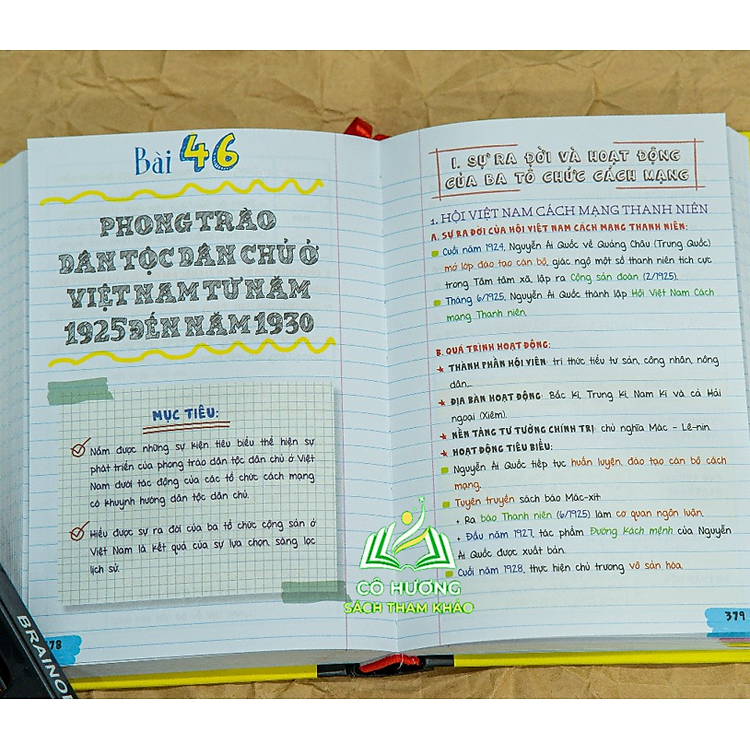 Bài 46
PHONG TRÀO
DÂN TỘC DÂN CHỦ Ở
VIỆT NAM TỪ NĂM
1925 ĐẾN NĂM 1930
MỤC TIÊU:
Nắm được những sự kiện tiêu biểu thể hiện sự
phát triển của phong trào dân tộc dân chủ ở Việt
Nam dưới tác động của các tổ chức cách mạng
có khuynh hướng dân tộc dân chủ.
Hiểu được sự ra đời của ba tổ chức cộng sản ở
Việt Nam là kết quả của sự lựa chọn, sàng lọc
lịch sử.
78
BRAINO
I. SỰ RA ĐỜI VÀ HOẠT ĐỘNG
CỦA BA TỔ CHỨC CÁCH MẠNG
1. HỘI VIỆT NAM CÁCH MẠNG THANH NIÊN
A. SỰ RA ĐỜI CỦA HỘI VIỆT NAM CÁCH MẠNG THANH NIÊN:
Cuối năm 1924, Nguyễn Ái Quốc về Quảng Châu (Trung Quốc)
mở lớp đào tạo cán bộ, giác ngộ một số thanh niên tích cực
trong Tâm tâm xã, lập ra Cộng sản đoàn (2/1925).
Tháng 6/1925, Nguyễn Ái Quốc thành lập Hội Việt Nam Cách
mạng Thanh niên.
B. QUÁ TRÌNH HOẠT ĐỘNG:
THÀNH PHẦN HỘI VIÊN: trí thức tiểu tư sản, công nhân, nông
dân,...
ĐỊA BÀN HOẠT ĐỘNG: Bắc kì, Trung Kì, Nam Kì và cả Hải
ngoại (Xiêm).
NỀN TẢNG TƯ TƯỞNG CHÍNH TRỊ: chủ nghĩa Mác - Lê-nin.
HOẠT ĐỘNG TIÊU BIỂU:
Nguyễn Ái Quốc tiếp tục huấn luyện, đào tạo cán bộ cách
mạng.
Tuyên truyền sách báo Mác-xít
+ Ra báo Thanh niên (6/1925) làm cơ quan ngôn luận.
+ Đầu năm 1927, tác phẩm Đường Kách mệnh của Nguyễn
Ái Quốc được xuất bản.
Cuối năm 1928, thực hiện chủ trương vô sản hóa.
379
CÔ HƯƠNG
SÁCH THAM KHẢO